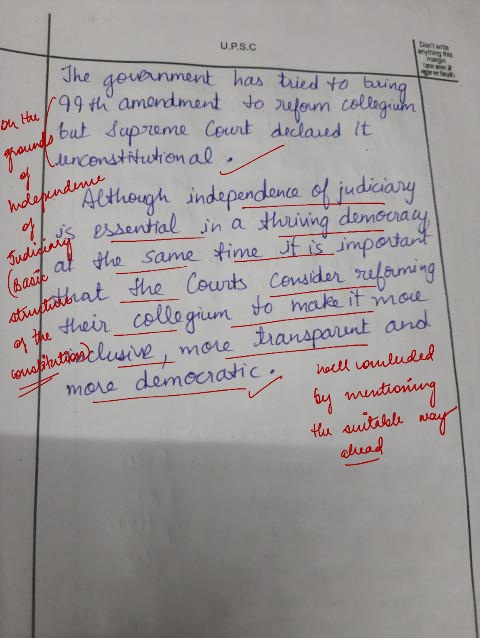 U.P.S.C
Don't write
anything this
margin
The government has tried to bring
99th amendment to reform collegium
but Supreme Court declared it
unconstitutional.
Although independence of judiciary
is essential in a thriving democracy,
at the same time it is important
that the Courts consider reforming
their collegium to make it more
inclusive, more transparent and
more democratic.
on the
grounds
of
Independence
of
Judiciary
(Basic
structure
of the
constitution)
well concluded
by mentioning
the suitable way
ahead